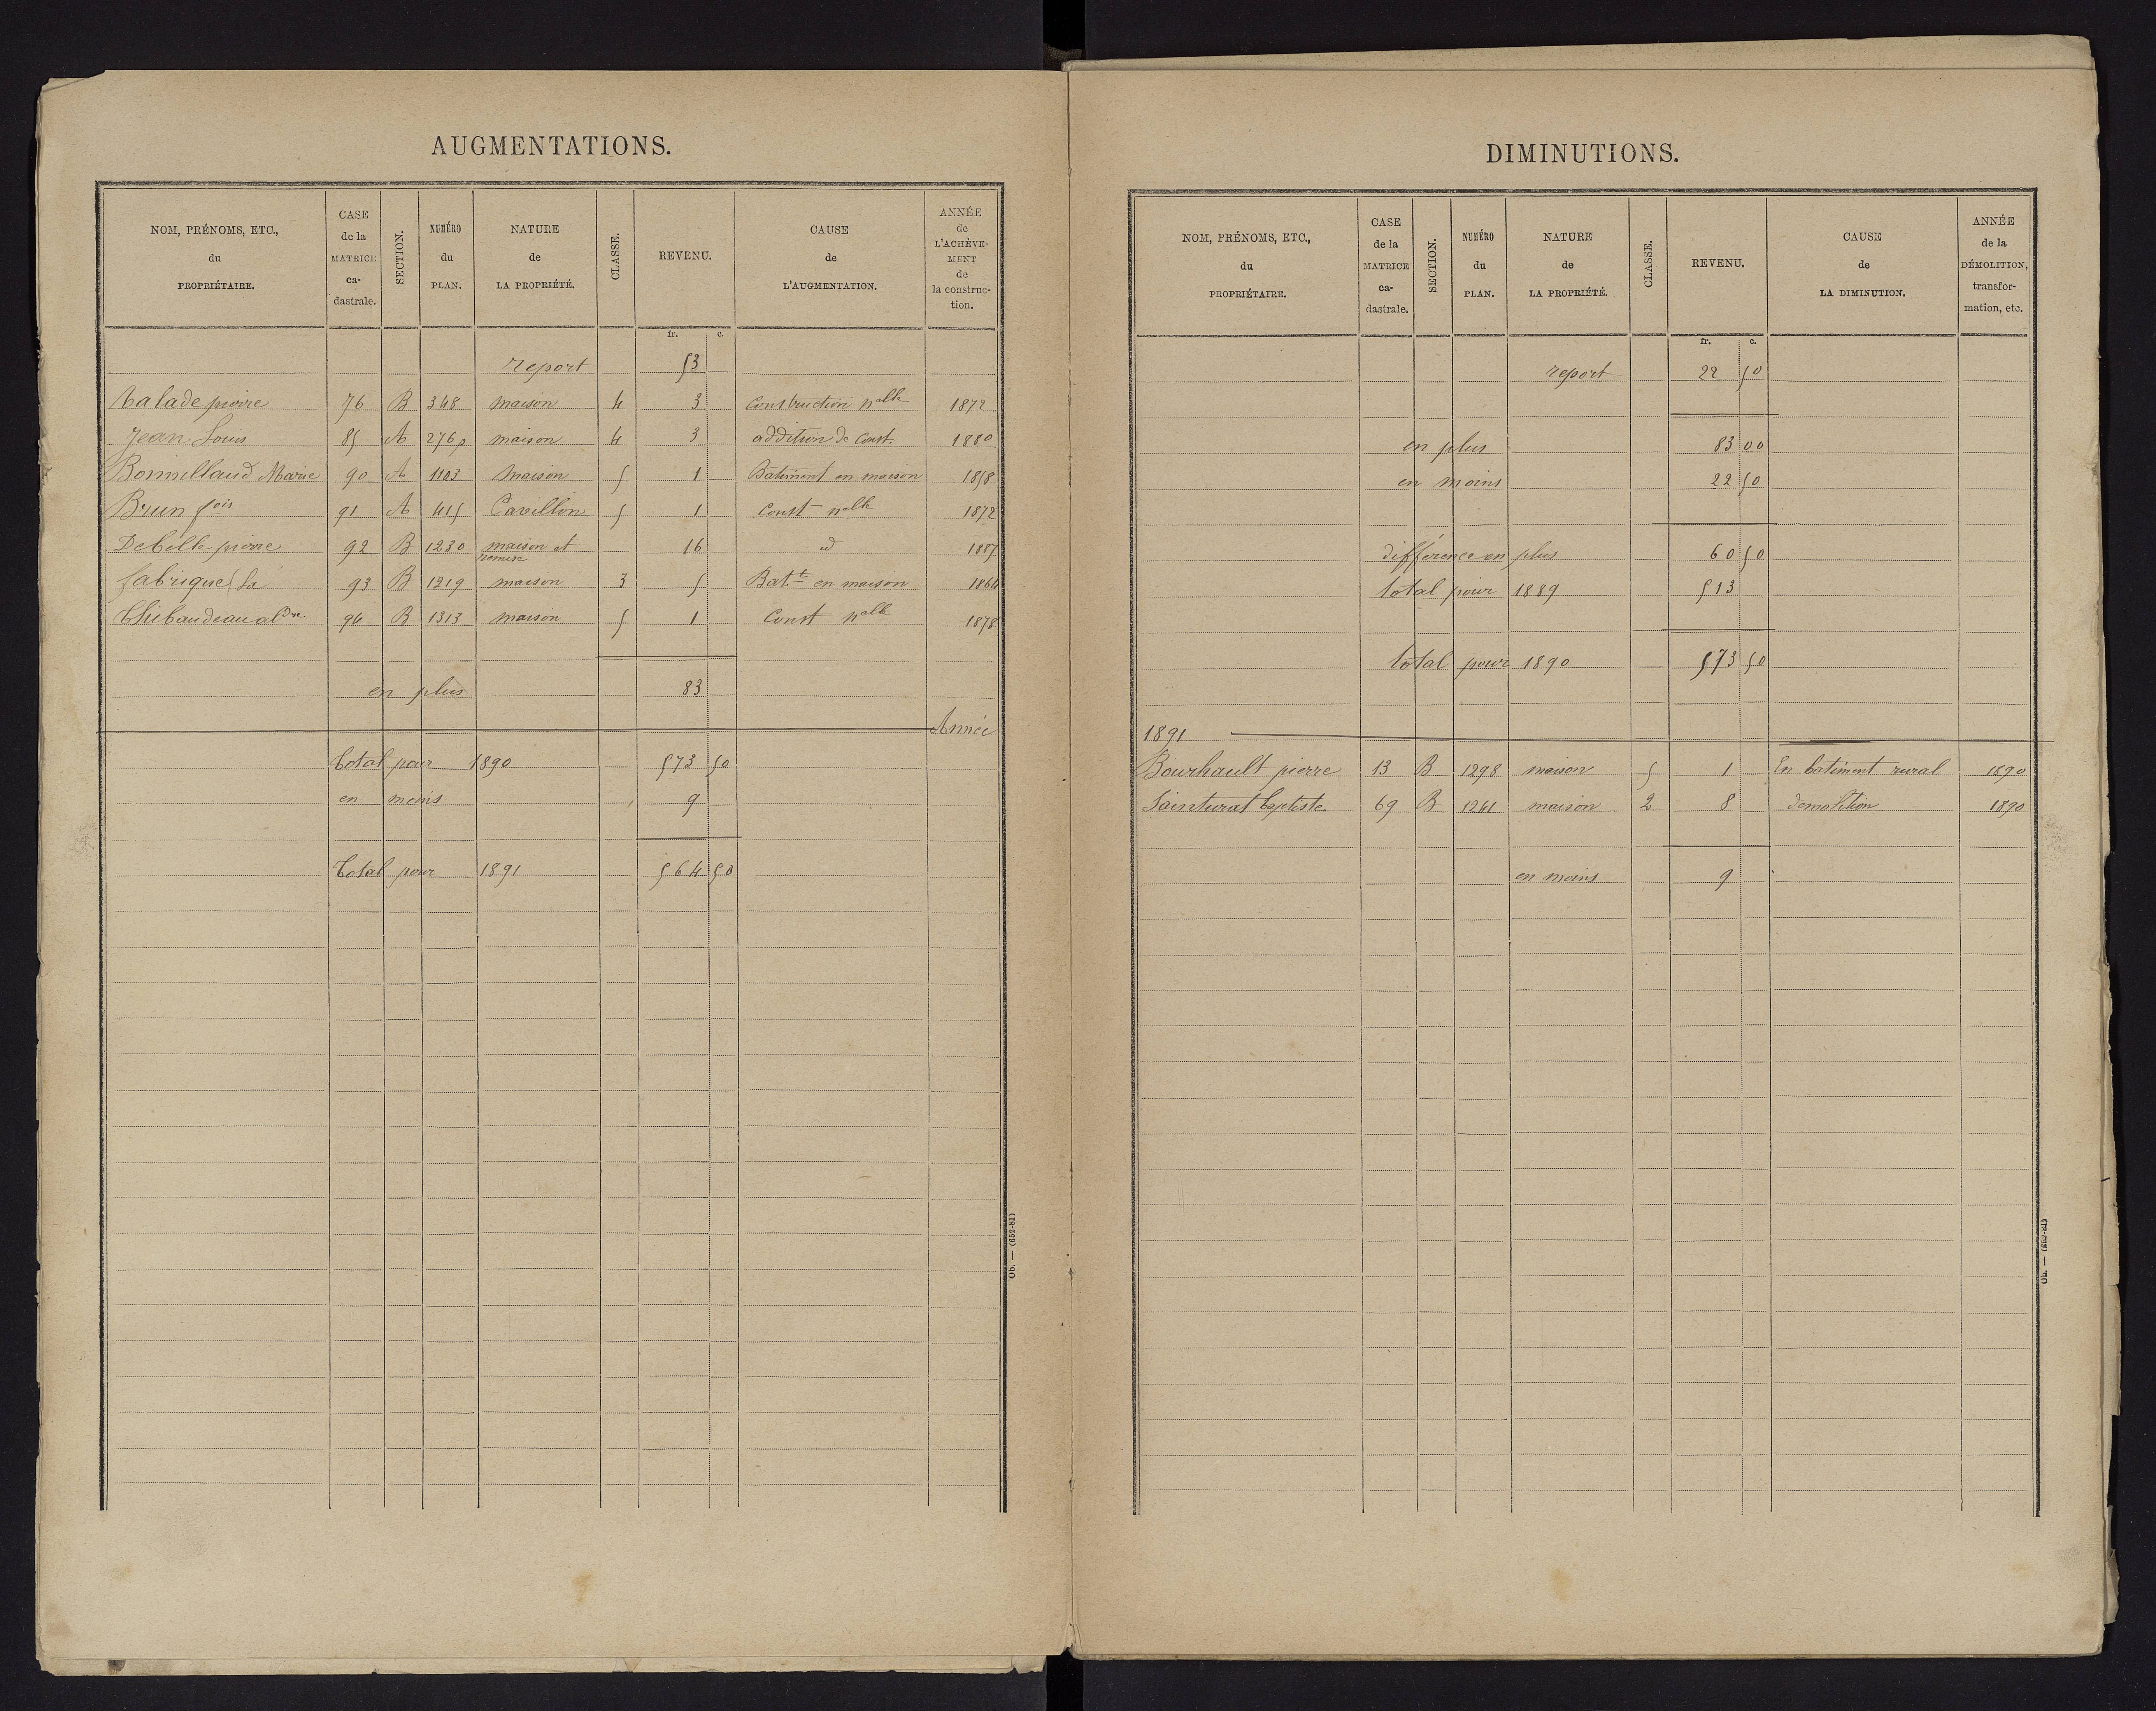 AUGMENTATIONS.
NOM, PRÉNOMS, ETC., du PROPRIÉTAIRE. CASE de la MATRICE ca-dastrale. SECTION. NUMÉRO du PLAN. NATURE de LA PROPRIÉTÉ. CLASSE. REVENU. CAUSE de L'AUGMENTATION. ANNÉE de L'ACHÈVE-MENT de la construc-tion.
fr. c.
report 53
Talade pierre 76 B 348 maison 4 3 Construction nelle 1872
Jean Louis 85 A 276p maison 4 3 addition de Const. 1880
Bonnillaud Marie 90 A 1103 maison 5 1 Batiment en maison 1858
Brun fois 91 A 415 Pavillon 5 1 Const nelle 1872
Debelle pierre 92 B 1230 maison et remise 16 id 1887
fabrique (La 93 B 1219 maison 3 5 Bat.t en maison 1864
Thibaudeau aldre 94 B 1313 maison 5 1 Const nelle 1878
en plus 83
Année
Total pour 1890 573 50
en moins 9
Total pour 1891 564 50
Ob. — (652-81)
DIMINUTIONS.
NOM, PRÉNOMS, ETC., du PROPRIÉTAIRE. CASE de la MATRICE ca-dastrale. SECTION. NUMÉRO du PLAN. NATURE de LA PROPRIÉTÉ. CLASSE. REVENU. CAUSE de LA DIMINUTION. ANNÉE de la DÉMOLITION, transfor-mation, etc.
fr. c.
report 22 50
en plus 83 00
en moins 22 50
différence en plus 60 50
total pour 1889 513
total pour 1890 573 50
1891
Bourhault pierre 13 B 1298 maison 5 1 En batiment rural 1890
Sainturat baptiste 69 B 1241 maison 2 8 demolition 1890
en moins 9
Ob. — (652-81)